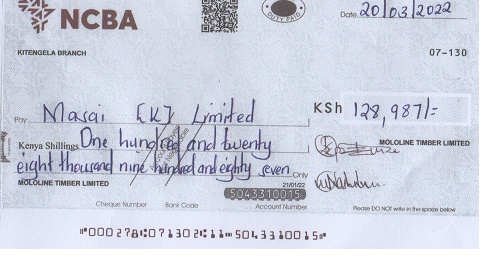 NCBA
DUTY PAID
Date 20/03/2022
KITENGELA BRANCH
07-130
Pay Masai [K] Limited
KSh 128,987/=
Kenya Shillings One hundred and twenty
MOLOLINE TIMBER LIMITED
eight thousand nine hundred and eighty seven Only
MOLOLINE TIMBER LIMITED
21/01/22
5043310015
Cheque Number Bank Code Account Number
Please DO NOT write in the space below
⑈000278⑆071302⑆11⑉5043310015⑈